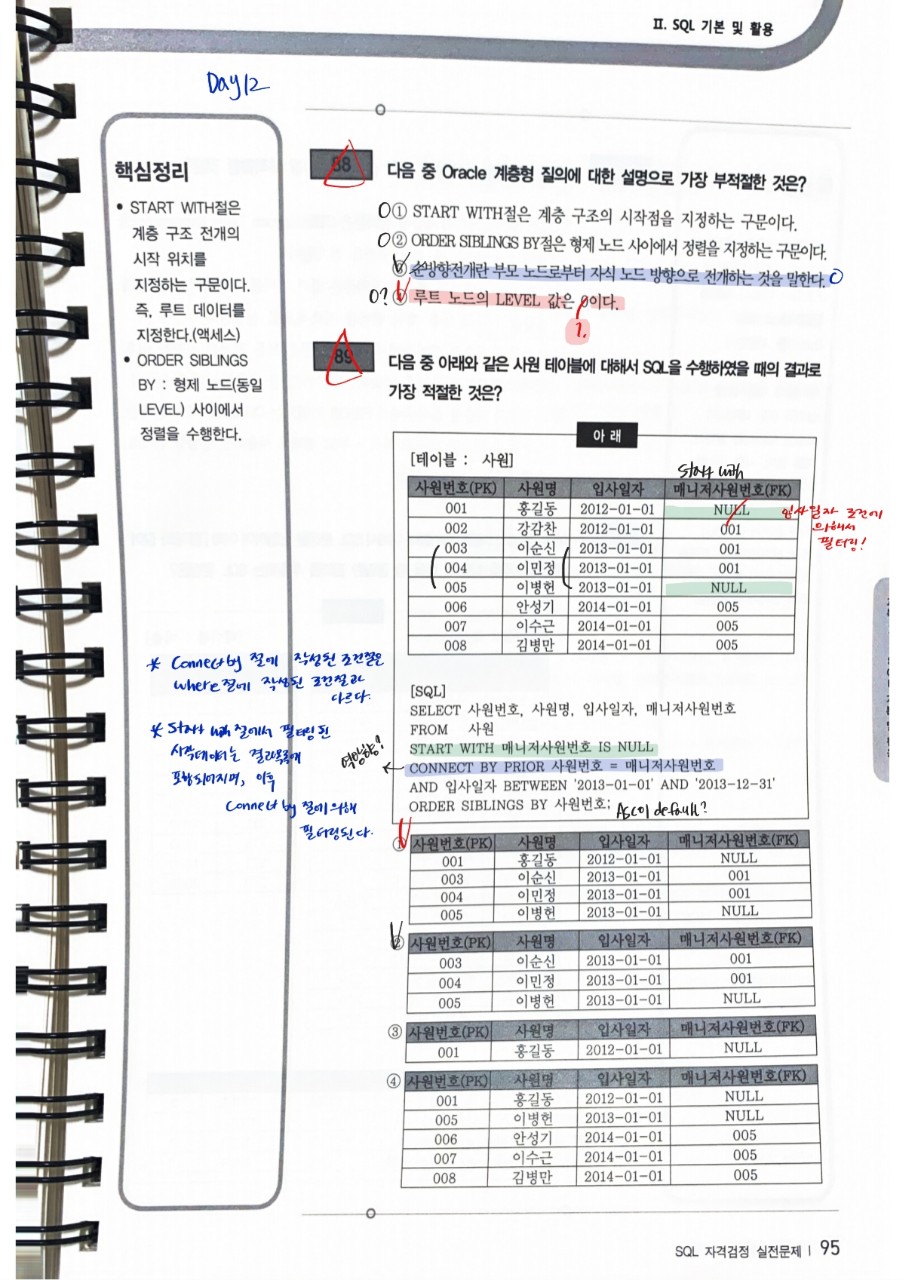 II. SQL 기본 및 활용
Day12
핵심정리
• START WITH절은
계층 구조 전개의
시작 위치를
지정하는 구문이다.
즉, 루트 데이터를
지정한다.(액세스)
• ORDER SIBLINGS
BY : 형제 노드(동일
LEVEL) 사이에서
정렬을 수행한다.
* Connect by 절에 작성된 조건절은
where절에 작성된 조건절과
다르다.
* Start with절에서 필터링된
시작데이터는 결과목록에
포함되어지며, 이후
Connect by 절에 의해
필터링된다.
88 다음 중 Oracle 계층형 질의에 대한 설명으로 가장 부적절한 것은?
○① START WITH절은 계층 구조의 시작점을 지정하는 구문이다.
○② ORDER SIBLINGS BY절은 형제 노드 사이에서 정렬을 지정하는 구문이다.
③ 순방향전개란 부모 노드로부터 자식 노드 방향으로 전개하는 것을 말한다. ○
○? ④ 루트 노드의 LEVEL 값은 0이다.
1.
89 다음 중 아래와 같은 사원 테이블에 대해서 SQL을 수행하였을 때의 결과로
가장 적절한 것은?
아 래
[테이블 : 사원]
Start with
사원번호(PK) 사원명 입사일자 매니저사원번호(FK)
001 홍길동 2012-01-01 NULL
002 강감찬 2012-01-01 001
003 이순신 2013-01-01 001
004 이민정 2013-01-01 001
005 이병헌 2013-01-01 NULL
006 안성기 2014-01-01 005
007 이수근 2014-01-01 005
008 김병만 2014-01-01 005
입사일자 조건에
의해서
필터링!
[SQL]
SELECT 사원번호, 사원명, 입사일자, 매니저사원번호
FROM 사원
START WITH 매니저사원번호 IS NULL
역방향?
CONNECT BY PRIOR 사원번호 = 매니저사원번호
AND 입사일자 BETWEEN '2013-01-01' AND '2013-12-31'
ORDER SIBLINGS BY 사원번호;
Asc이 default?
① 사원번호(PK) 사원명 입사일자 매니저사원번호(FK)
001 홍길동 2012-01-01 NULL
003 이순신 2013-01-01 001
004 이민정 2013-01-01 001
005 이병헌 2013-01-01 NULL
② 사원번호(PK) 사원명 입사일자 매니저사원번호(FK)
003 이순신 2013-01-01 001
004 이민정 2013-01-01 001
005 이병헌 2013-01-01 NULL
③ 사원번호(PK) 사원명 입사일자 매니저사원번호(FK)
001 홍길동 2012-01-01 NULL
④ 사원번호(PK) 사원명 입사일자 매니저사원번호(FK)
001 홍길동 2012-01-01 NULL
005 이병헌 2013-01-01 NULL
006 안성기 2014-01-01 005
007 이수근 2014-01-01 005
008 김병만 2014-01-01 005
SQL 자격검정 실전문제 | 95